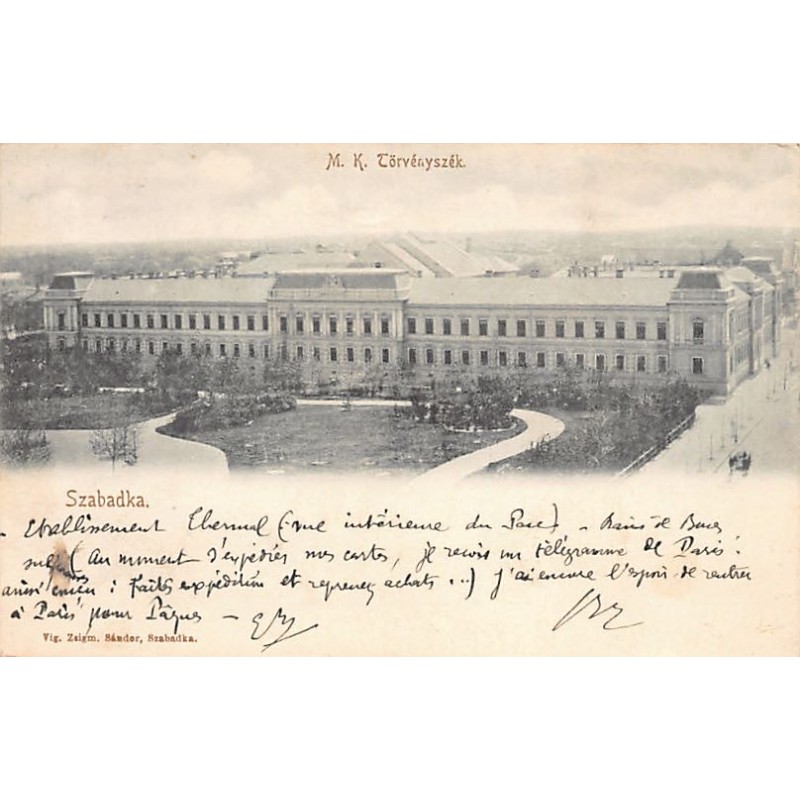 M. K. Törvényszék.
Szabadka.
- Etablissement Thermal (vue intérieure du Parc) - Bains de Boues
(Au moment d'expédier mes cartes, je reçois un télégramme de Paris :
: Faites expédition et reprenez achats ...) j'ai encore l'espoir de rentrer
à Paris pour Pâques -
Vig. Zsigm. Sándor, Szabadka.